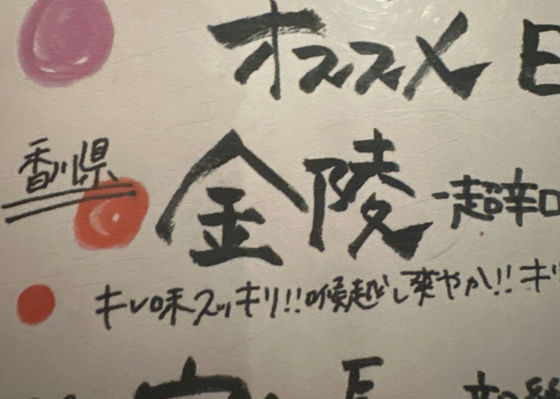 オススメ
香川県
金陵 -超辛口
キレ味スッキリ!!喉越し爽やか!! キ